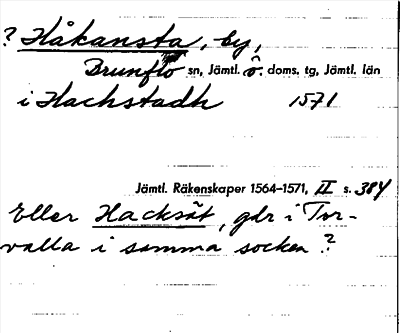 ? Håkansta, by,
Brunflo sn, Jämtl. ö. doms. tg, Jämtl. län
i Hachstadh 1571
Jämtl. Räkenskaper 1564–1571, II s. 384
Eller Hacksät, gdr i Tor-
valla i samma socken?